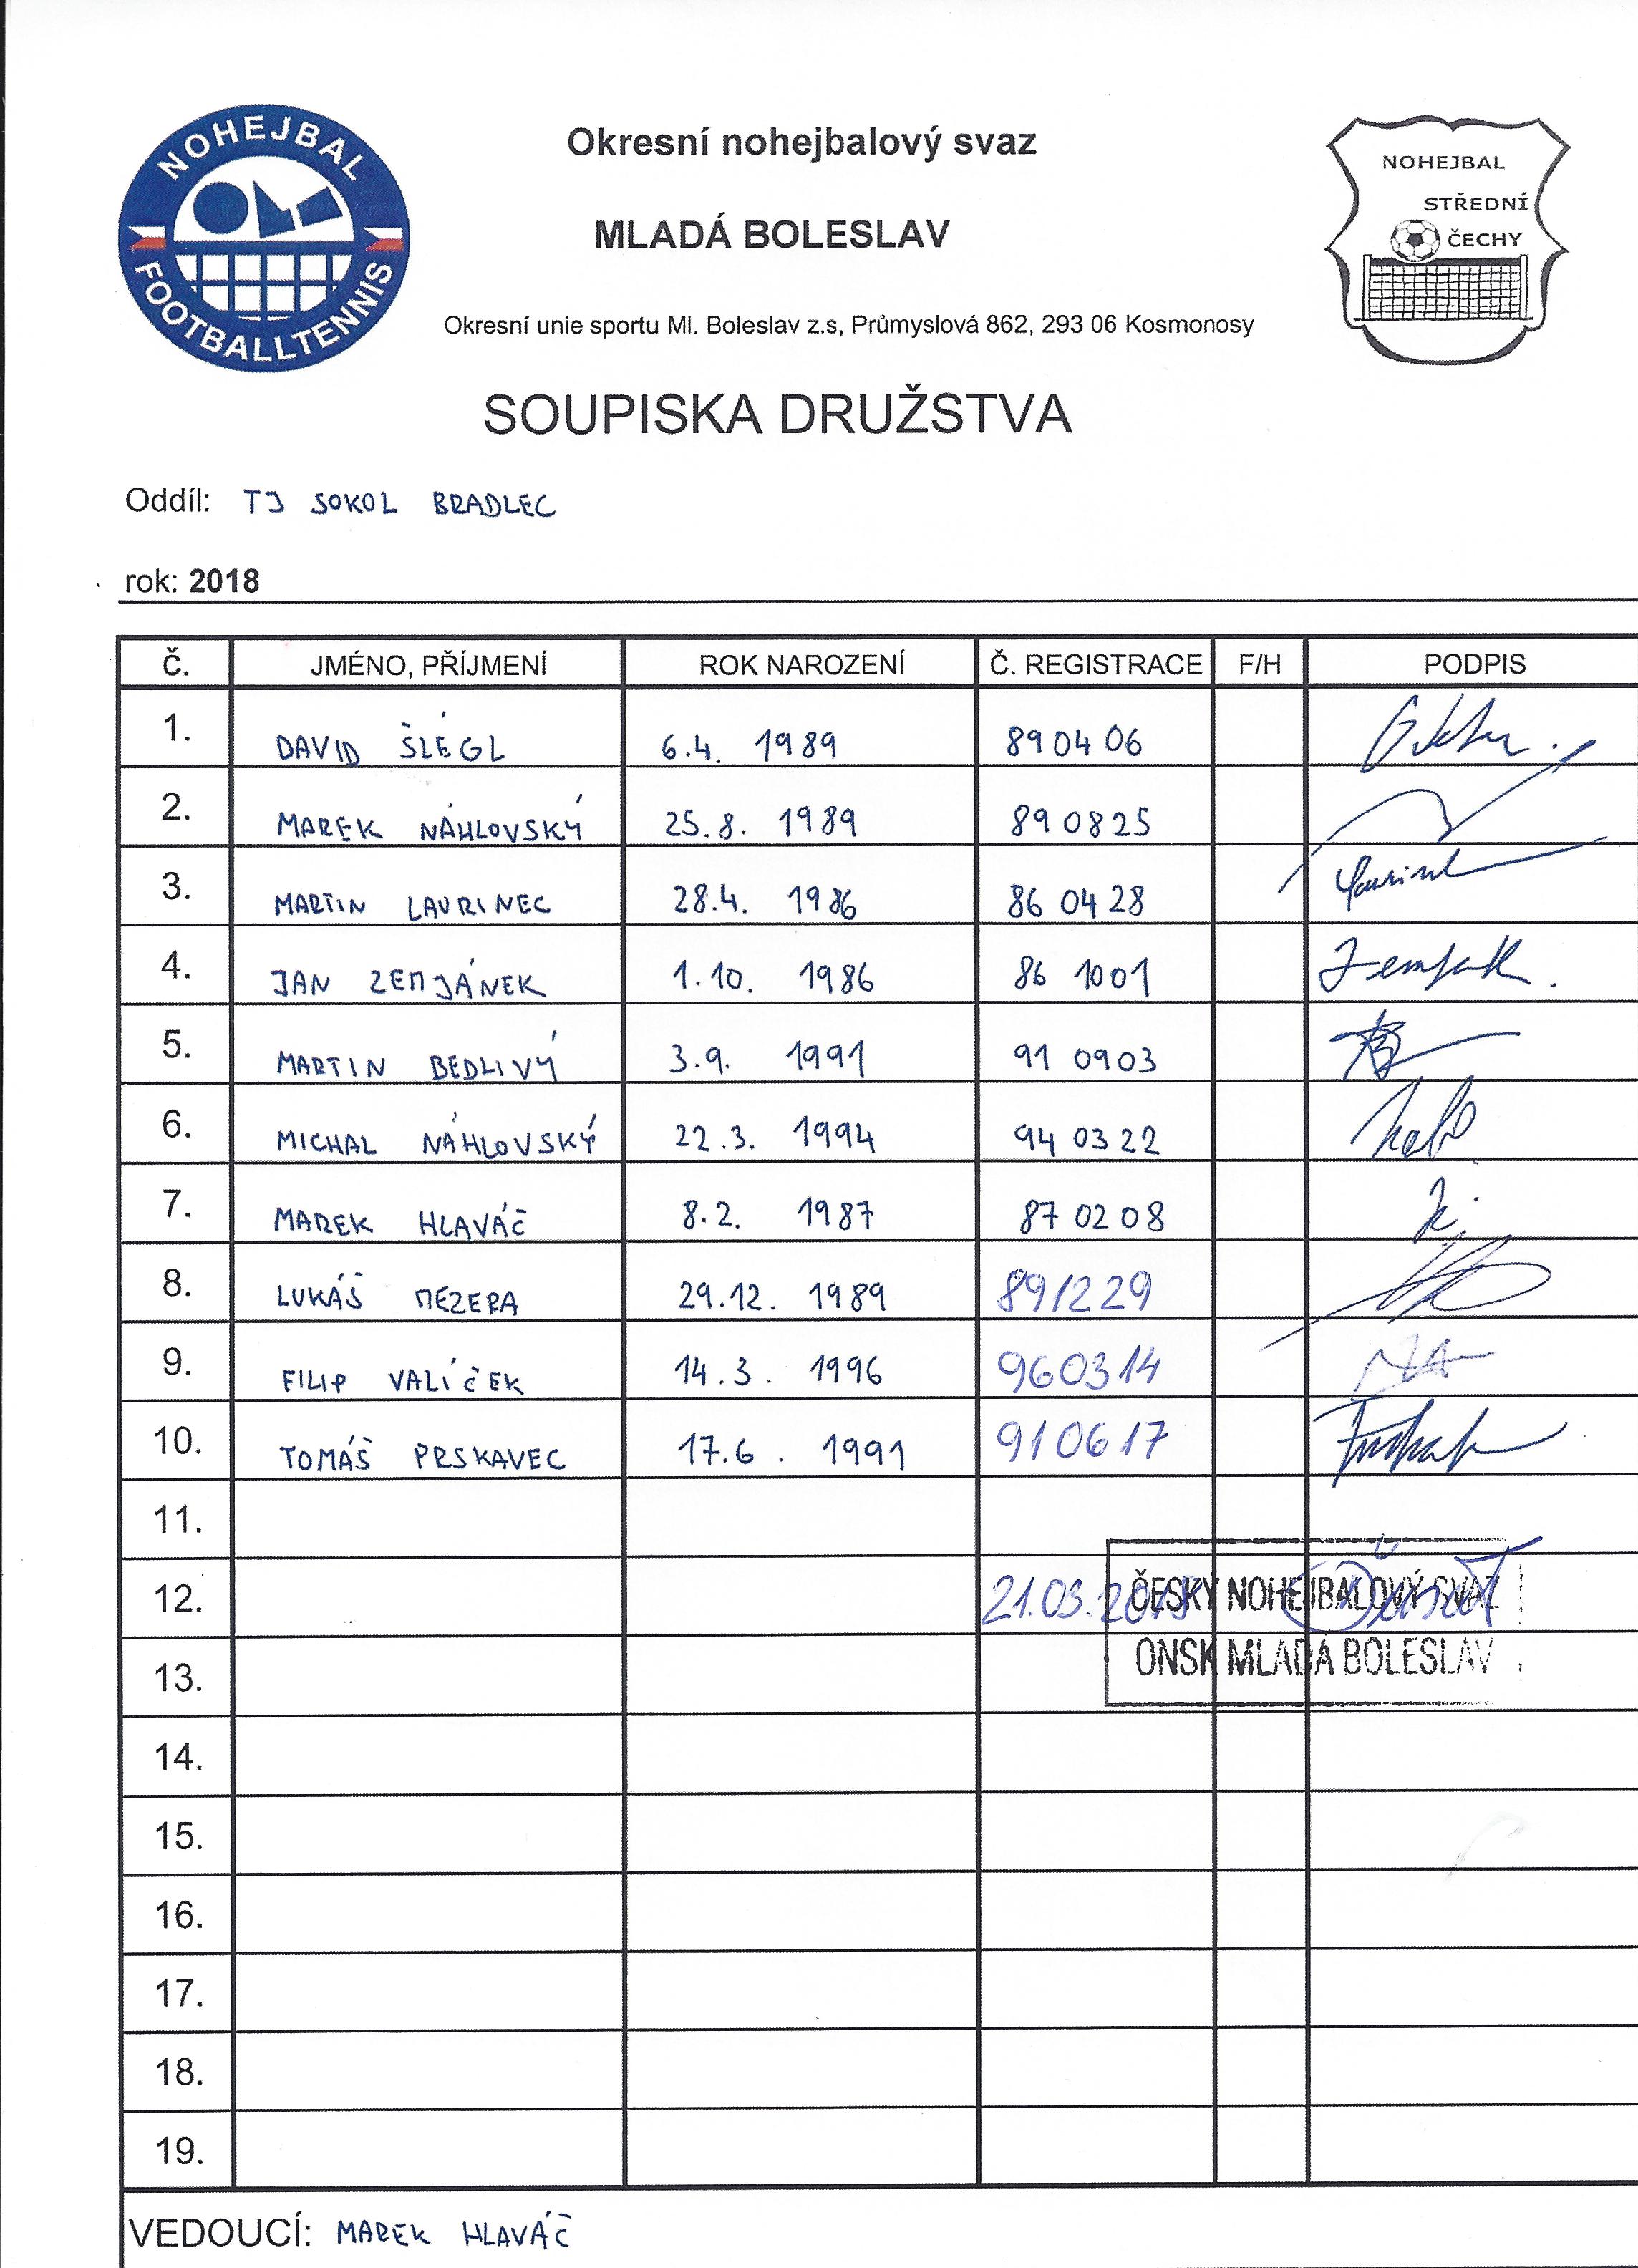 NOHEJBAL
FOOTBALLTENNIS
Okresní nohejbalový svaz
MLADÁ BOLESLAV
Okresní unie sportu Ml. Boleslav z.s, Průmyslová 862, 293 06 Kosmonosy
NOHEJBAL
STŘEDNÍ
ČECHY
SOUPISKA DRUŽSTVA
Oddíl: TJ SOKOL BRADLEC
rok: 2018
Č. JMÉNO, PŘÍJMENÍ ROK NAROZENÍ Č. REGISTRACE F/H PODPIS
1. DAVID ŠLÉGL 6.4. 1989 890406
2. MAREK NÁHLOVSKÝ 25.8. 1989 890825
3. MARTIN LAURINEC 28.4. 1986 860428
4. JAN ZEMJÁNEK 1.10. 1986 861001
5. MARTIN BEDLIVÝ 3.9. 1991 910903
6. MICHAL NÁHLOVSKÝ 22.3. 1994 940322
7. MAREK HLAVÁČ 8.2. 1987 870208
8. LUKÁŠ MEZERA 29.12. 1989 891229
9. FILIP VALÍČEK 14.3. 1996 960314
10. TOMÁŠ PRSKAVEC 17.6. 1991 910617
11.
12. 21.03. ČESKÝ NOHEJBALOVÝ SVAZ
13. ONSK MLADÁ BOLESLAV
14.
15.
16.
17.
18.
19.
VEDOUCÍ: MAREK HLAVÁČ